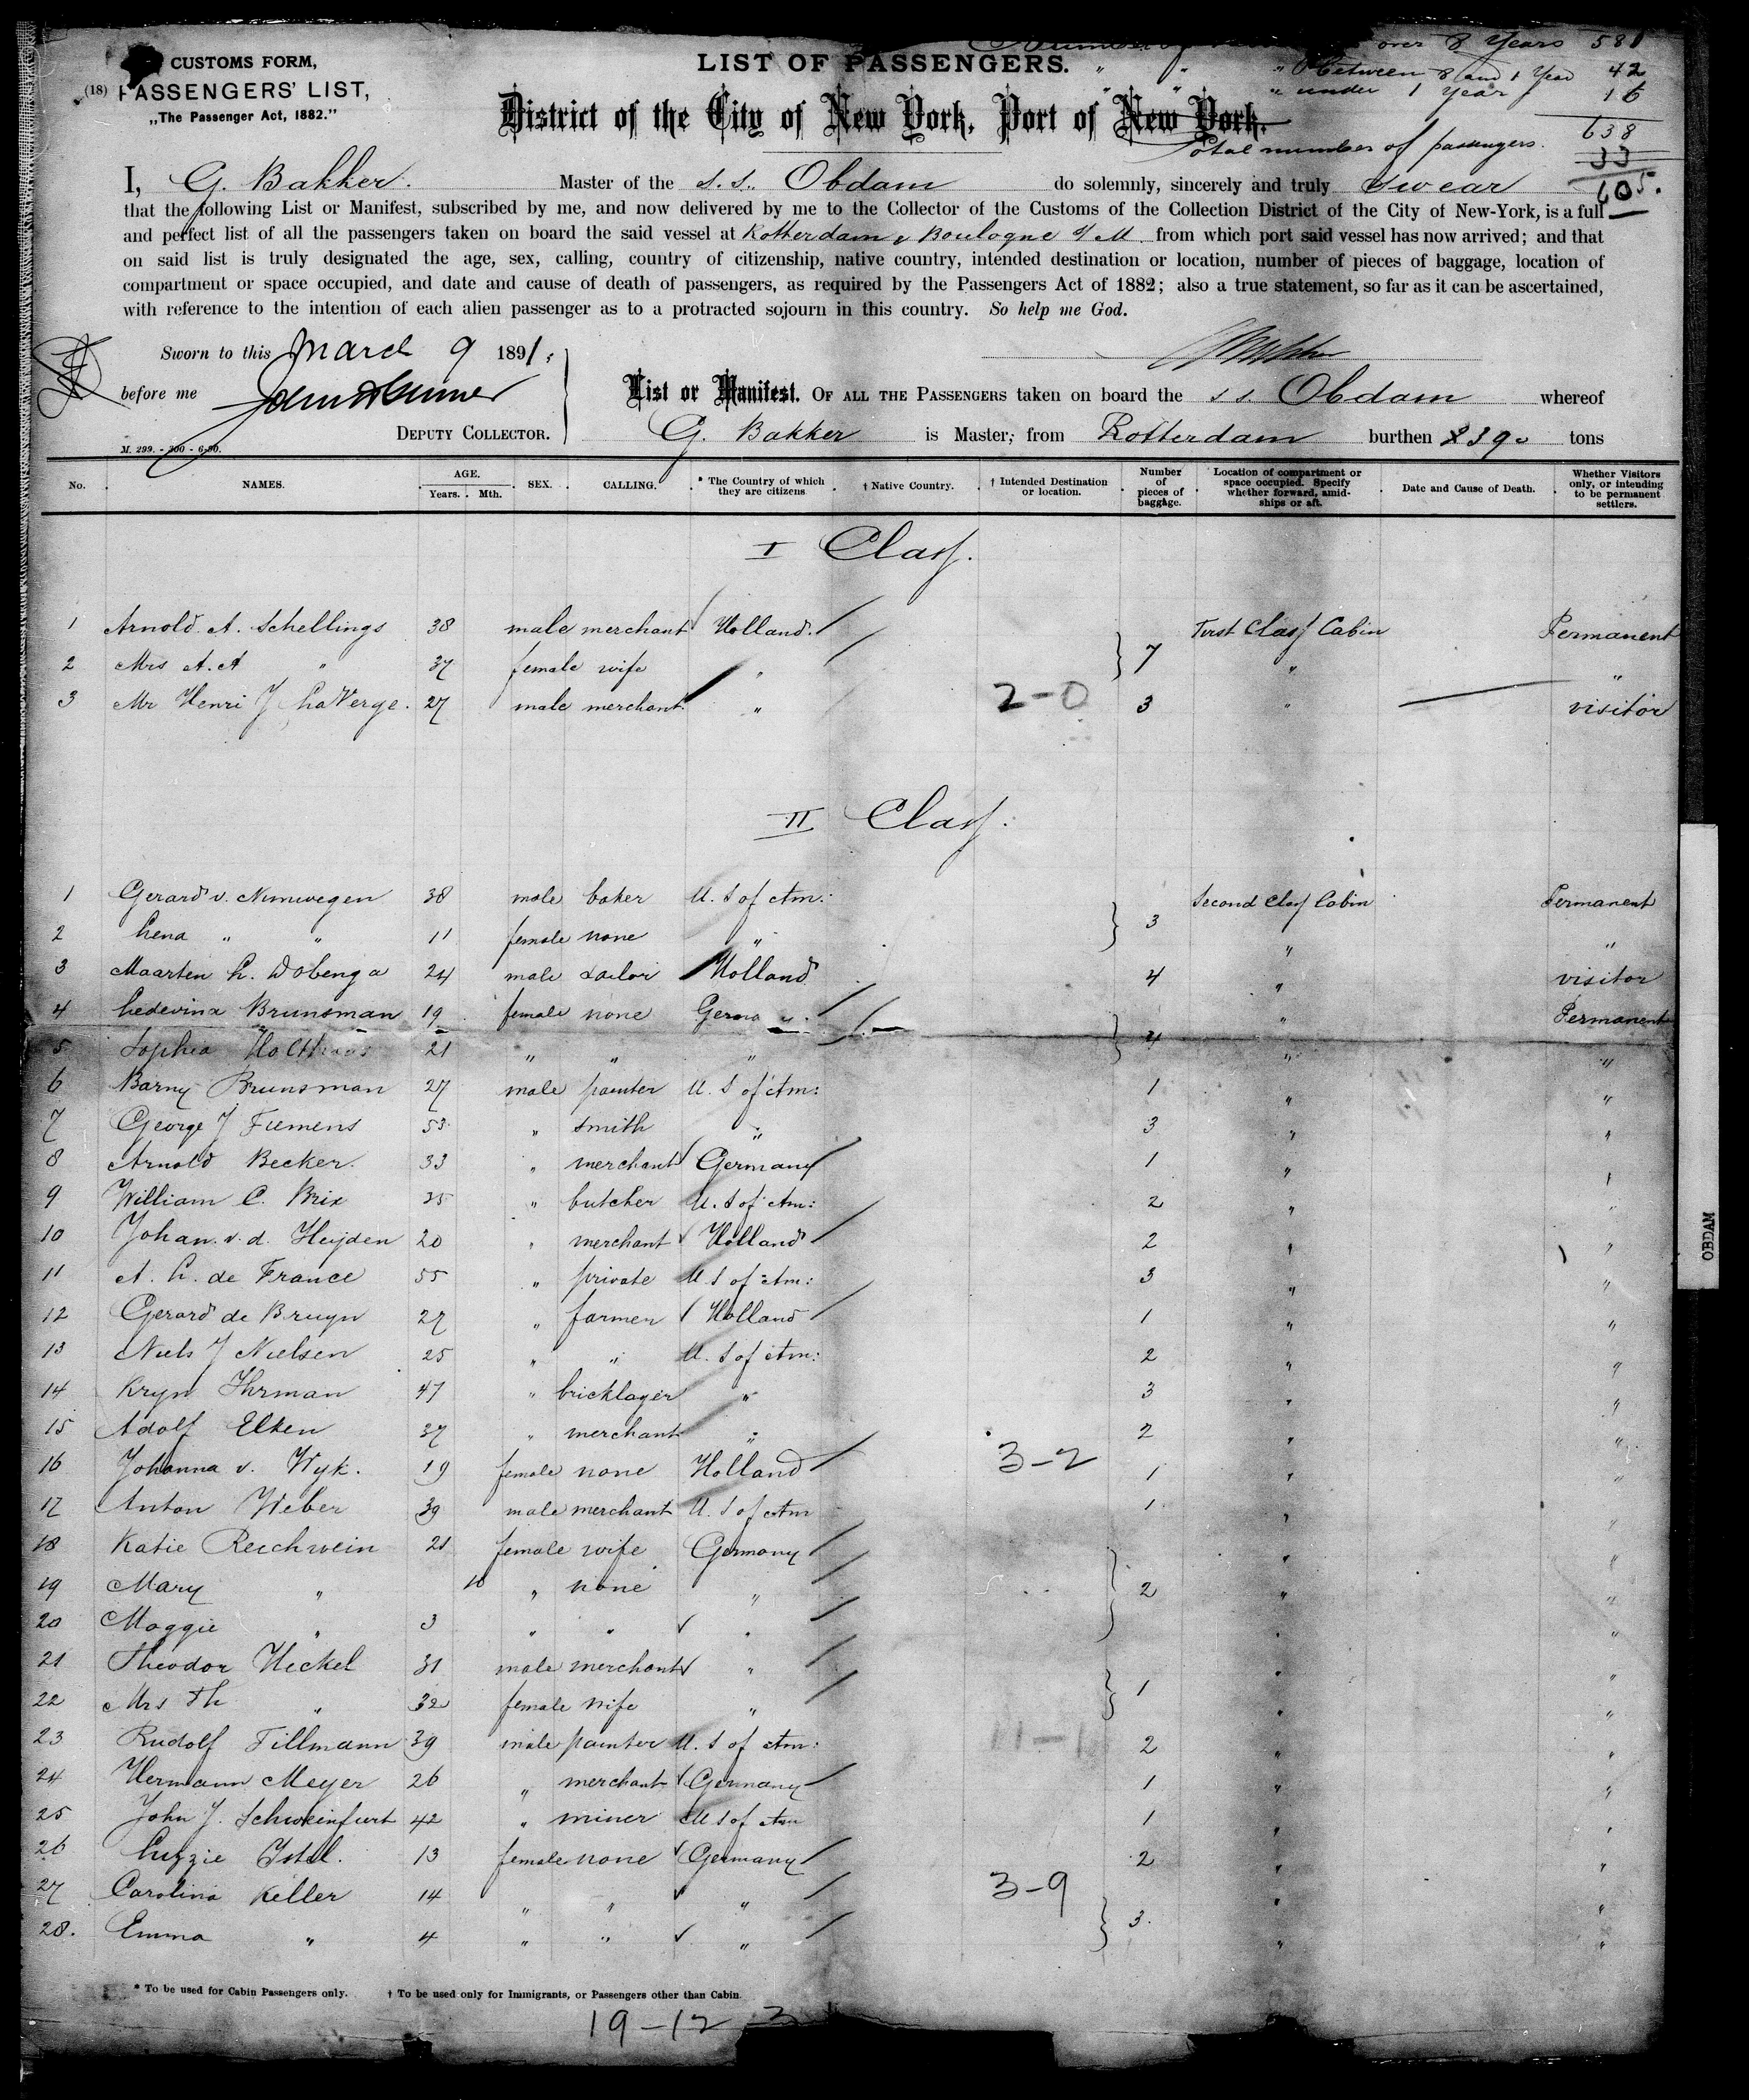 CUSTOMS FORM,
(18) PASSENGERS' LIST,
„The Passenger Act, 1882."
LIST OF PASSENGERS.
over 8 Years 581
" " " between 8 and 1 Year 42
" " " under 1 Year 16
638
Total number of passengers.
33
605.
District of the City of New York, Port of New York.
I, G. Bakker. Master of the s.s. Obdam do solemnly, sincerely and truly swear
that the following List or Manifest, subscribed by me, and now delivered by me to the Collector of the Customs of the Collection District of the City of New-York, is a full
and perfect list of all the passengers taken on board the said vessel at Rotterdam & Boulogne s/M from which port said vessel has now arrived; and that
on said list is truly designated the age, sex, calling, country of citizenship, native country, intended destination or location, number of pieces of baggage, location of
compartment or space occupied, and date and cause of death of passengers, as required by the Passengers Act of 1882; also a true statement, so far as it can be ascertained,
with reference to the intention of each alien passenger as to a protracted sojourn in this country. So help me God.
Sworn to this March 9 1891:
before me
DEPUTY COLLECTOR.
M. 299. - 300 - 6-90.
List or Manifest. OF ALL THE PASSENGERS taken on board the s s. Obdam whereof
G. Bakker is Master, from Rotterdam burthen 2390 tons
No. NAMES. AGE. Years. Mth. SEX. CALLING. * The Country of which they are citizens † Native Country. † Intended Destination or location. Number of pieces of baggage. Location of compartment or space occupied. Specify whether forward, amidships or aft. Date and Cause of Death. Whether Visitors only, or intending to be permanent settlers.
I Class.
1 Arnold A. Schellings 38 male merchant Holland. First Class Cabin Permanent
2 Mrs A. A " 37 female wife " 7 " "
3 Mr Henri J LaVerge. 27 male merchant " 2-0 3 " visitor
II Class.
1 Gerard v. Nimwegen 38 male baker U. S of Am: Second Class Cabin Permanent
2 Lena " " 11 female none " 3 " "
3 Maarten L. Dobenga 24 male sailor Holland 4 " visitor
4 Ledevina Brunsman 19 female none Germany. " Permanent
5 Sophia 21 " " " 4 " "
6 Barny Brunsman 27 male painter U. S of Am: 1 " "
7 George J Fiemens 53 " smith " 3 " "
8 Arnold Becker. 33 " merchant Germany 1 " "
9 William C. Brix 35 " butcher U. S of Am: 2 " "
10 Johan. v. d. Heijden 20 " merchant Holland 2 " "
11 A. L. de France 55 " private U S of Am: 3 " "
12 Gerard de Bruyn 27 " farmer Holland 1 " "
13 Niels J Nielsen 25 " " U. S of Am: 2 " "
14 Kryn Ihrman 47 " bricklayer " 3 " "
15 Adolf Elken 37 " merchant " 2 " "
16 Johanna v. Wyk. 19 female none Holland 3-2 1 " "
17 Anton Weber 39 male merchant U. S of Am 1 " "
18 Katie Reichwein 21 female wife Germany " "
19 Mary " 10 " none " 2 " "
20 Maggie " 3 " " " " "
21 Theodor Heckel 31 male merchant " " "
22 Mrs Th " 32 female wife " 1 " "
23 Rudolf Tillmann 39 male painter U. S of Am: 11-1 2 " "
24 Hermann Meyer 26 " merchant Germany 1 " "
25 John J. Schweinfurt 42 " miner U S of Am 1 " "
26 Lizzie Istel. 13 female none Germany 2 " "
27 Carolina Keller 14 " " " 3-9 " "
28. Emma " 4 " " " 3. " "
* To be used for Cabin Passengers only. † To be used only for Immigrants, or Passengers other than Cabin.
19-12 3
OBDAM